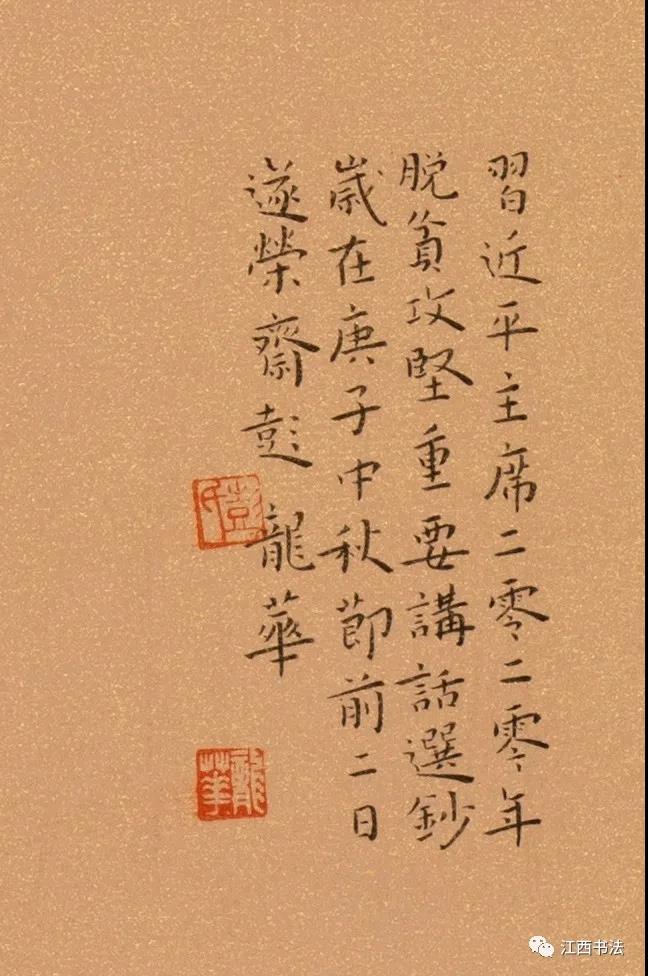 習近平主席二零二零年
脱貧攻堅重要講話選鈔
歲在庚子中秋節前二日
遂榮齋彭龍華
彭氏
龍華
江西书法